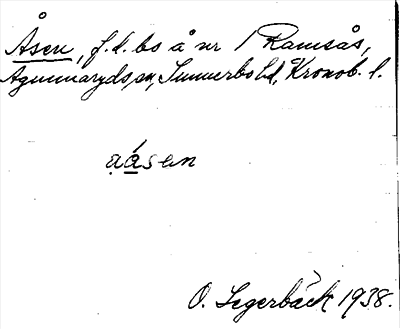 Åsen, f.d. bs å nr 1 Ramsås,
Agunnaryds sn, Sunnerbo hd, Kronob. l.
aásen
O. Segerbäck 1938.